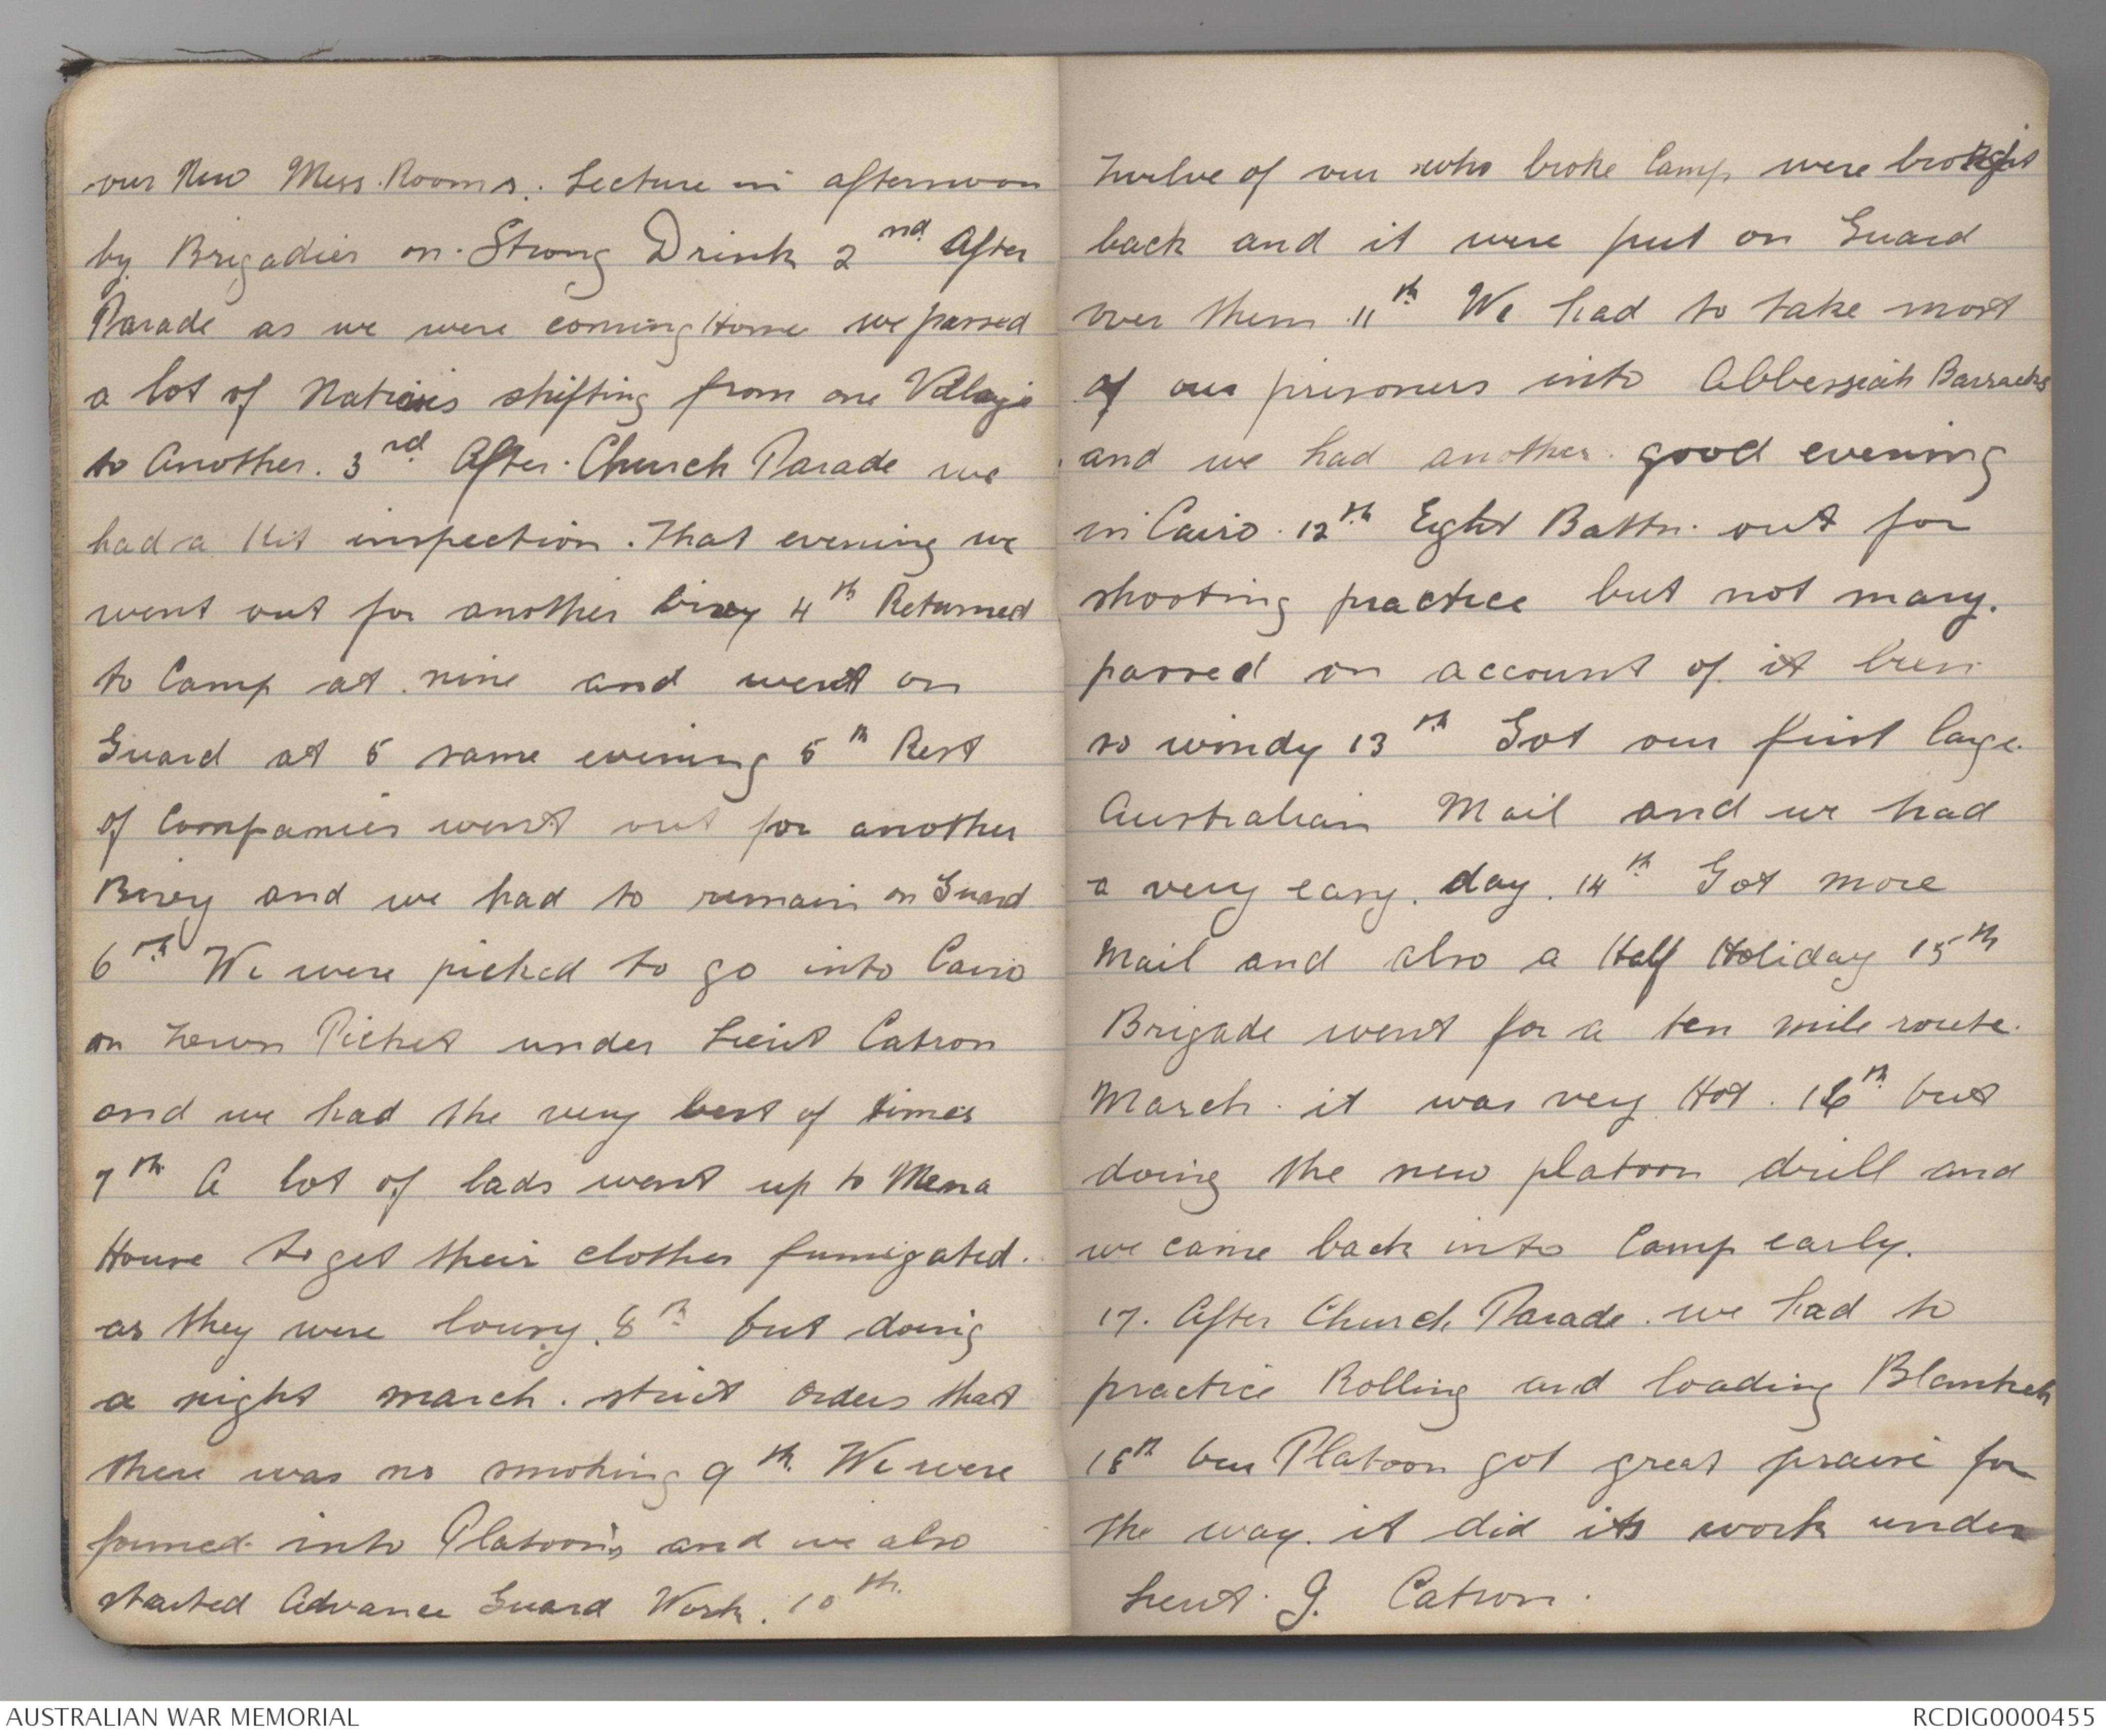 our New Mess. Rooms. Lecture in afternoon
by Brigadier on Strong Drink 2nd After
Parade as we were coming Home we passed
a lot of Natives shifting from one Village
to Another. 3rd After Church Parade we
had a Kit inspection. That evening we
went out for another bivy 4th Returned
to Camp at nine and went on
Guard at 5 same evening 5th Rest
of Companies went out for another
Bivy and we had to remain on Guard
6th We were picked to go into Cairo
on Town Picket under Lieut Catron
and we had the very best of times
7th A lot of lads went up to Mena
House to get their clothes fumigated.
as they were lousy. 8th but doing
a night march. strict orders that
there was no smoking 9th. We were
formed into Platoons and we also
started Advance Guard Work. 10th.
Twelve of our who broke Camp were brought
back and it were put on Guard
over them 11th We had to take most
of our prisoners into Abbessiah Barracks
and we had another good evening
in Cairo. 12th Eight Battn. out for
shooting practice but not many.
passed on account of it been
so windy 13th Got our first large
Australian Mail and we had
a very easy. day. 14th Got more
Mail and also a Half Holiday 15th
Brigade went for a ten mile route.
March. it was very Hot. 16th but
doing the new platoon drill and
we came back into Camp early.
17. After Church Parade. we had to
practice Rolling and loading Blankets
18th Our Platoon got great praise for
the way. it did its work under
Lieut. G. Catron.
AUSTRALIAN WAR MEMORIAL
RCDIG0000455